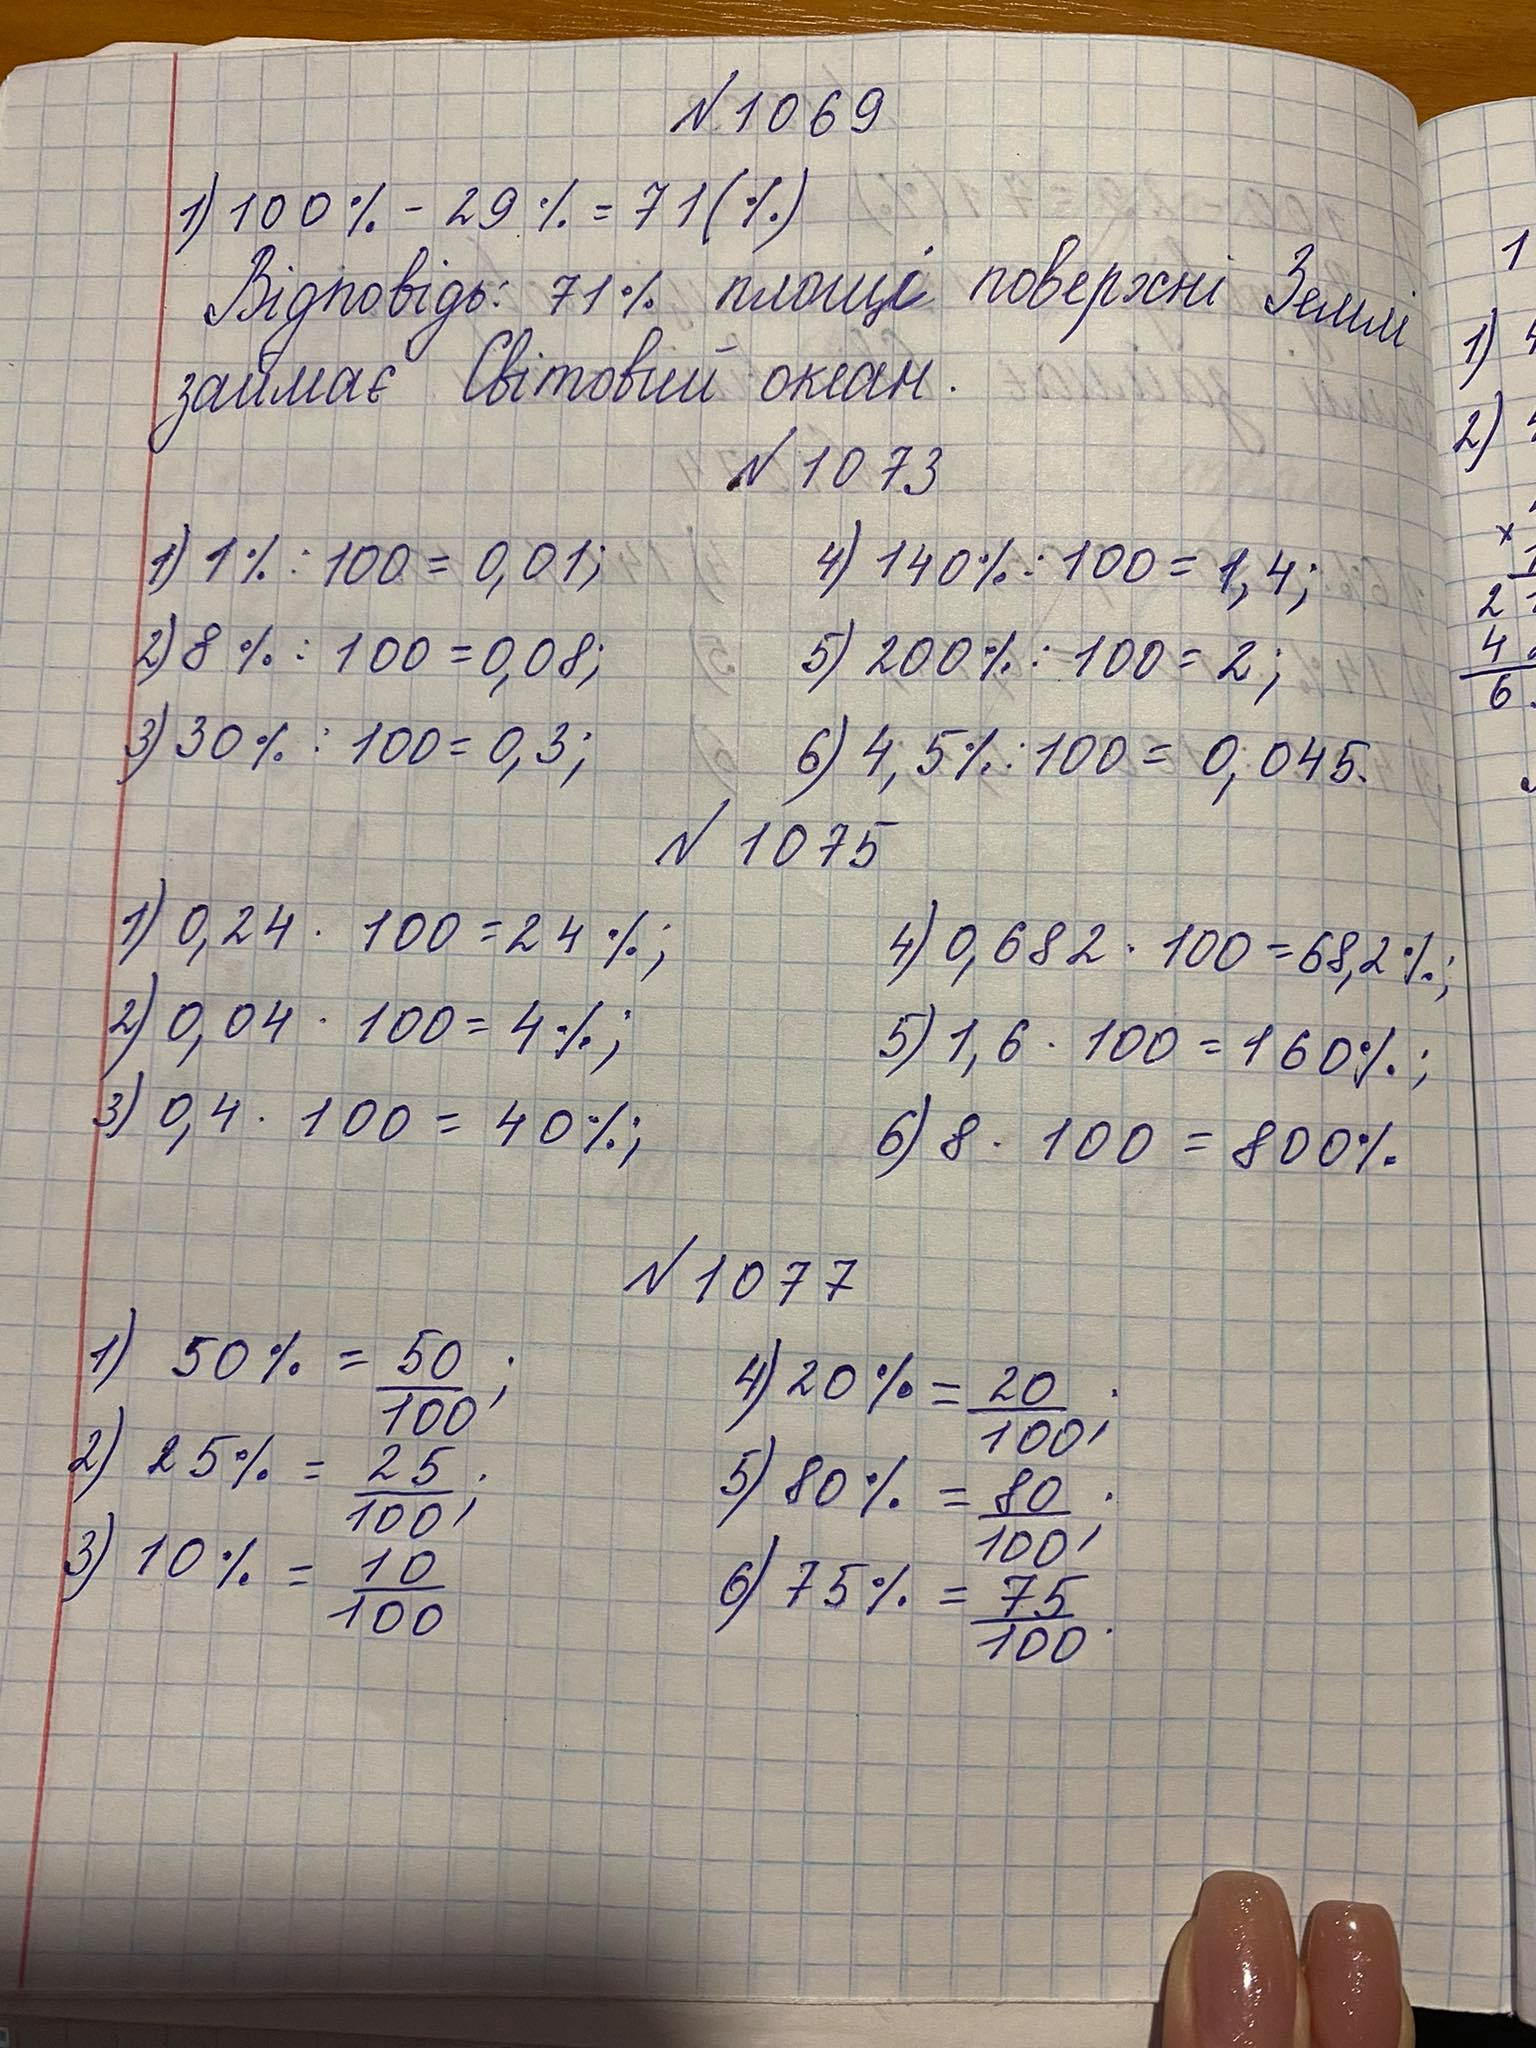 №1069
1) 100% - 29% = 71(%)
Відповідь: 71% площі поверхні Землі
займає Світовий океан.
№1073
1) 1% : 100 = 0,01;
2) 8% : 100 = 0,08;
3) 30% : 100 = 0,3;
4) 140% : 100 = 1,4;
5) 200% : 100 = 2;
6) 4,5% : 100 = 0,045.
№1075
1) 0,24 · 100 = 24%;
2) 0,04 · 100 = 4%;
3) 0,4 · 100 = 40%;
4) 0,682 · 100 = 68,2%;
5) 1,6 · 100 = 160%;
6) 8 · 100 = 800%.
№1077
1) 50% = 50/100;
2) 25% = 25/100;
3) 10% = 10/100
4) 20% = 20/100;
5) 80% = 80/100;
6) 75% = 75/100.
1
1) 4
2)
×
2 1
4
6